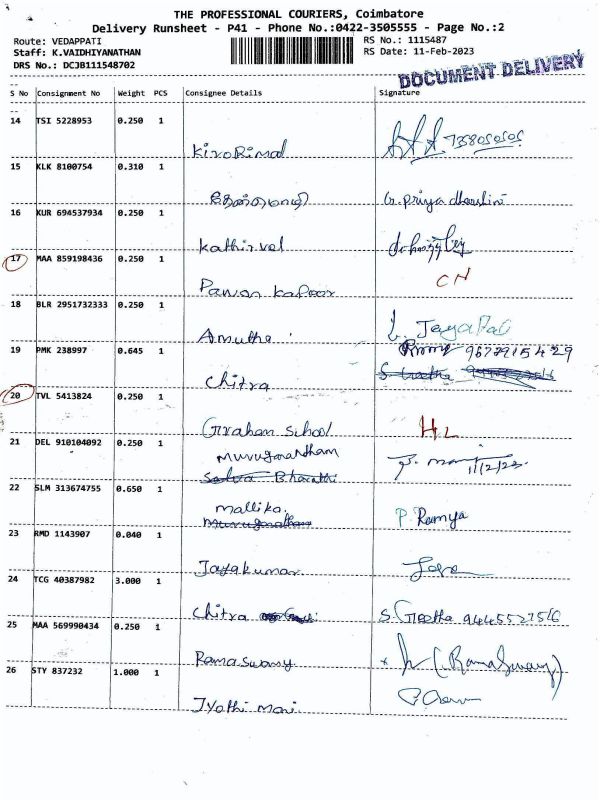 THE PROFESSIONAL COURIERS, Coimbatore
Delivery Runsheet - P41 - Phone No.:0422-3505555 - Page No.:2
Route: VEDAPPATI RS No.: 1115487
Staff: K.VAIDHIYANATHAN RS Date: 11-Feb-2023
DRS No.: DCJB111548702
DOCUMENT DELIVERY
S No Consignment No Weight PCS Consignee Details Signature
14 TSI 5228953 0.250 1
15 KLK 8100754 0.310 1
G. Priya dharshini
16 KUR 694537934 0.250 1
Kathirvel
17 MAA 859198436 0.250 1
Pawan Kapoor CN
18 BLR 2951732333 0.250 1
Amutha
19 PMK 238997 0.645 1
Chitra
20 TVL 5413824 0.250 1
School HL
21 DEL 910104092 0.250 1
11/2/23
22 SLM 313674755 0.650 1
Mallika P. Ramya
23 RMD 1143907 0.040 1
Jayakumar
24 TCG 40387982 3.000 1
Chitra S. Geetha
25 MAA 569990434 0.250 1
Ramaswamy (Ramaswamy)
26 STY 837232 1.000 1
Jyothi Mani